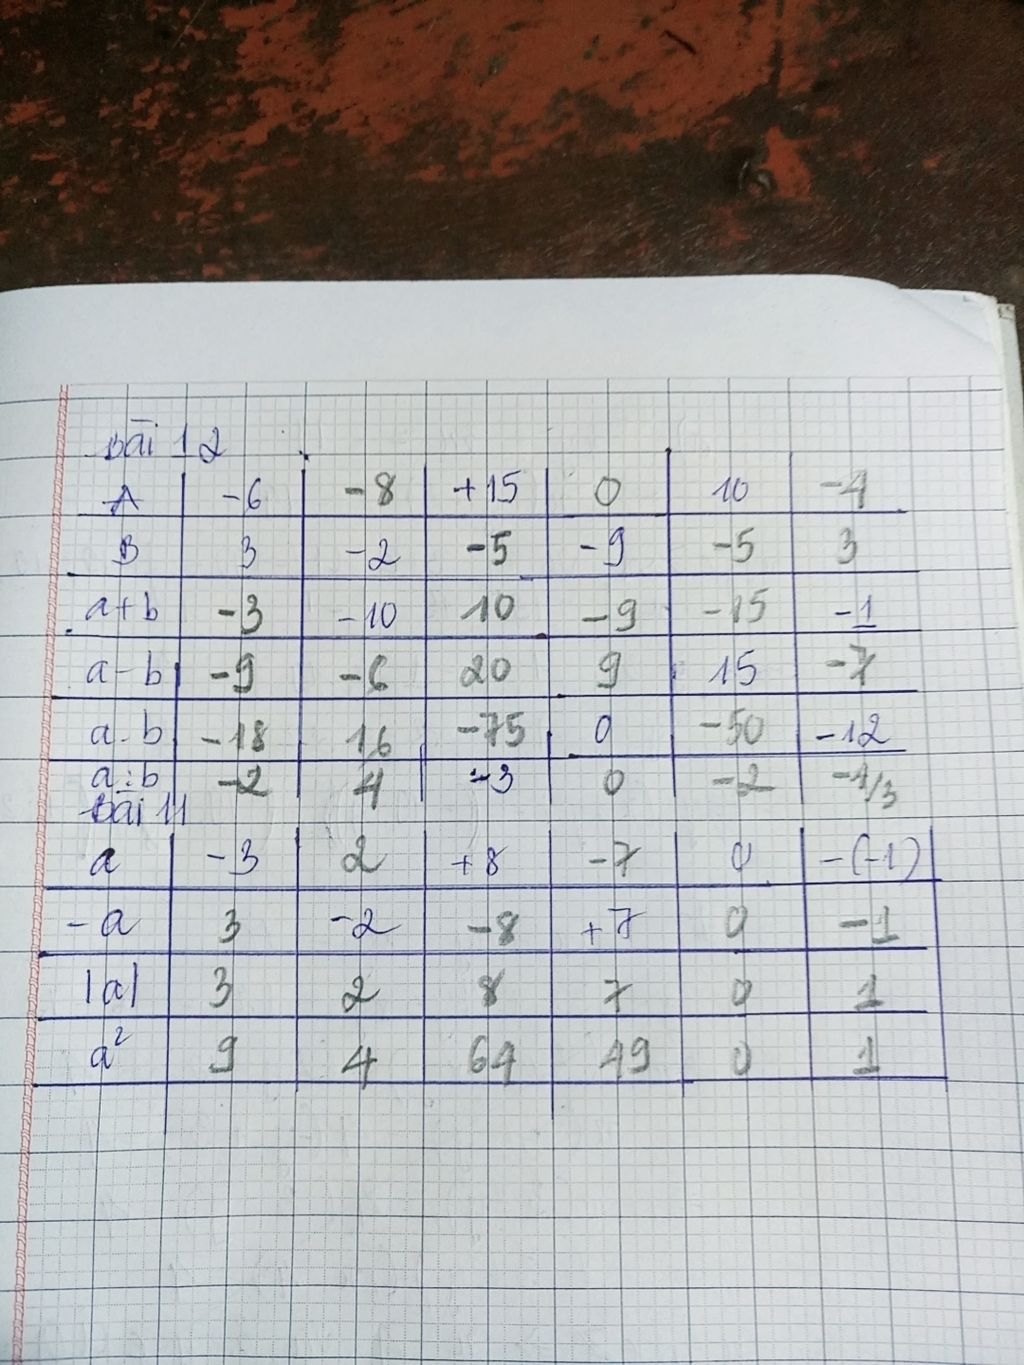 Bài 12
A -6 -8 +15 0 10 -4
B 3 -2 -5 -9 -5 3
a+b -3 -10 10 -9 -15 -1
a-b -9 -6 20 9 15 -7
a.b -18 16 -75 0 -50 -12
a:b -2 4 -3 0 -2 -4/3
Bài 11
a -3 2 +8 -7 0 -(-1)
-a 3 -2 -8 +7 0 -1
|a| 3 2 8 7 0 1
a² 9 4 64 49 0 1